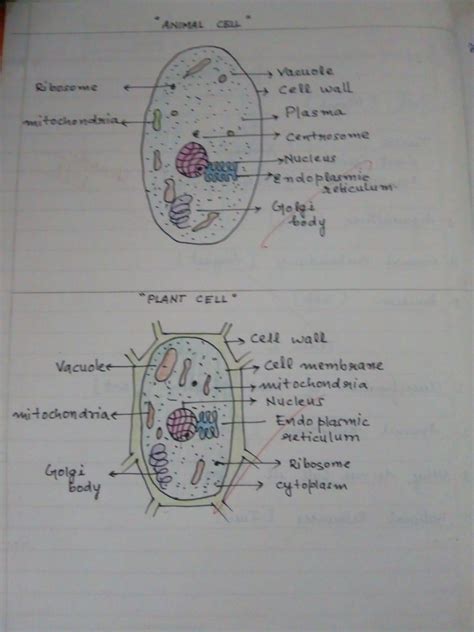 "ANIMAL CELL"
Ribosome
mitochondria
Vacuole
Cell wall
Plasma
Centrosome
Nucleus
Endoplasmic
reticulum
Golgi
body
"PLANT CELL"
Vacuole
mitochondria
Golgi
body
Cell wall
Cell membrane
mitochondria
Nucleus
Endoplasmic
reticulum
Ribosome
cytoplasm